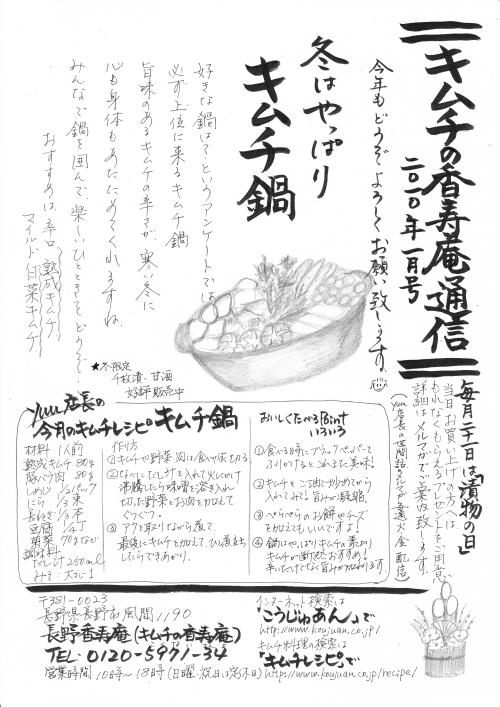 キムチの香寿庵通信
二〇一〇年一月号
今年もどうぞよろしくお願い致します。
冬はやっぱり
キムチ鍋
好きな鍋は?というアンケートでは
必ず上位に来るキムチ鍋
旨味のあるキムチの辛さが、寒い冬に
心も身体もあたためてくれますね。
みんなで鍋を囲んで、楽しいひとときをどうぞ…
おすすめは、辛口熟成キムチ
マイルド白菜キムチ
★冬限定
千枚漬、甘酒
好評販売中
毎月二十一日は「漬物の日」
当日お買い上げの方に
もれなくもらえるプレゼントをご用意。
詳細はメルマガでご案内致します。
(Yuu店長の世間話メルマガ 毎週火・金 配信)
Yuu店長の
今月のキムチレシピ キムチ鍋
材料 1人前
熟成キムチ 80g
豚バラ肉 80g
しめじ 1/2パック
にら 1/3束
長ねぎ 1/3本
豆腐 1/2丁
春菊 70gなど
調味料
だし汁 250ml
みそ:大さじ1
作り方
①キムチや野菜、肉は食べやすく切る
②なべにだし汁を入れて火にかけ
沸騰したら味噌を溶き入れ
切った野菜とお肉を加えて
ぐつぐつ。
③アクを取りながら煮て、
最後にキムチを加えて、ひと煮立ち
したらできあがり。
おいしくたべるPoint
いろいろ
①食べる時にブラックペッパーを
ふりかけるとこれまた美味。
②キムチをごま油で炒めてから
入れてみて!旨みが凝縮。
③ぺらぺらのお餅やチーズ
を加えてもいいですよ!
④鍋はやっぱりキムチの素より
キムチが断然おすすめ!
辛いだけでなく旨みが加わります
〒381-0023
長野県長野市風間1190
長野香寿庵(キムチの香寿庵)
TEL・0120-5971-34
営業時間 10時~18時(日曜・祝日は定休日)
インターネット検索は
「こうじゅあん」で
http://www.koujuan.co.jp/
キムチ料理の検索は
「キムチレシピ」で
http://www.koujuan.co.jp/recipe/